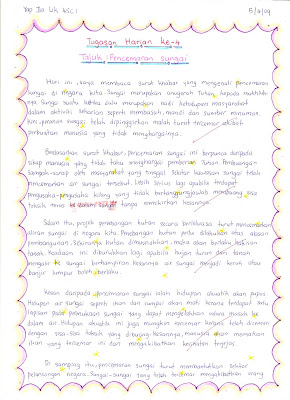 Yap Jia Uk, WSC1
5/4/09
Tugasan Harian ke-4
Tajuk: Pencemaran sungai
Hari ini, saya membaca surat khabar yang mengenai pencemaran
sungai di negara kita. Sungai merupakan anugerah Tuhan kepada makhluk-
nya. Sungai suatu ketika dulu merupakan nadi kehidupan masyarakat
dalam aktiviti seharian seperti membasuh, mandi dan sumber minuman.
Kini, peranan sungai telah dipinggirkan malah turut tercemar akibat
perbuatan manusia yang tidak menghargainya.
Berdasarkan surat khabar, pencemaran sungai ini berpunca daripada
sikap manusia yang tidak tahu menghargai pemberian Tuhan. Pembuangan
sampah-sarap oleh masyarakat yang tinggal sekitar kawasan sungai telah
pencemaran air sungai tersebut. Lebih serius lagi apabila terdapat
pengusaha-pengusaha kilang yang tidak bertanggungjawab membuang sisa
toksik terus ke dalam sungai tanpa memikirkan kesannya.
Selain itu, projek penebangan hutan secara berleluasa turut mencemarkan
aliran sungai di negara kita. Penebangan hutan perlu dilakukan atas alasan
pembangunan. Sekiranya hutan dimusnahkan, maka akan berlaku hakisan
tanah. Keadaan ini diburukkan lagi apabila hujan turun dan tanah
mengalir ke sungai berhampiran. Kesannya air sungai menjadi keruh atau
banjir lumpur boleh berlaku.
Kesan daripada pencemaran sungai ialah hidupan akuatik akan pupus.
Hidupan air sungai seperti ikan dan rumpai akan mati kerana terdapat satu
lapisan pada permukaan sungai yang dapat menyebabkan udara masuk ke
dalam air. Hidupan akuatik ini juga mungkin tercemar kerana telah dicemari
dengan sisa-sisa toksik yang dibuang. Kesannya, manusia akan memakan
ikan yang tercemar ini dan mengakibatkan kejadian tragis.
Di samping itu, pencemaran sungai turut membantutkan sektor
pelancongan negara. Sungai-sungai yang telah tercemar mengakibatkan orang